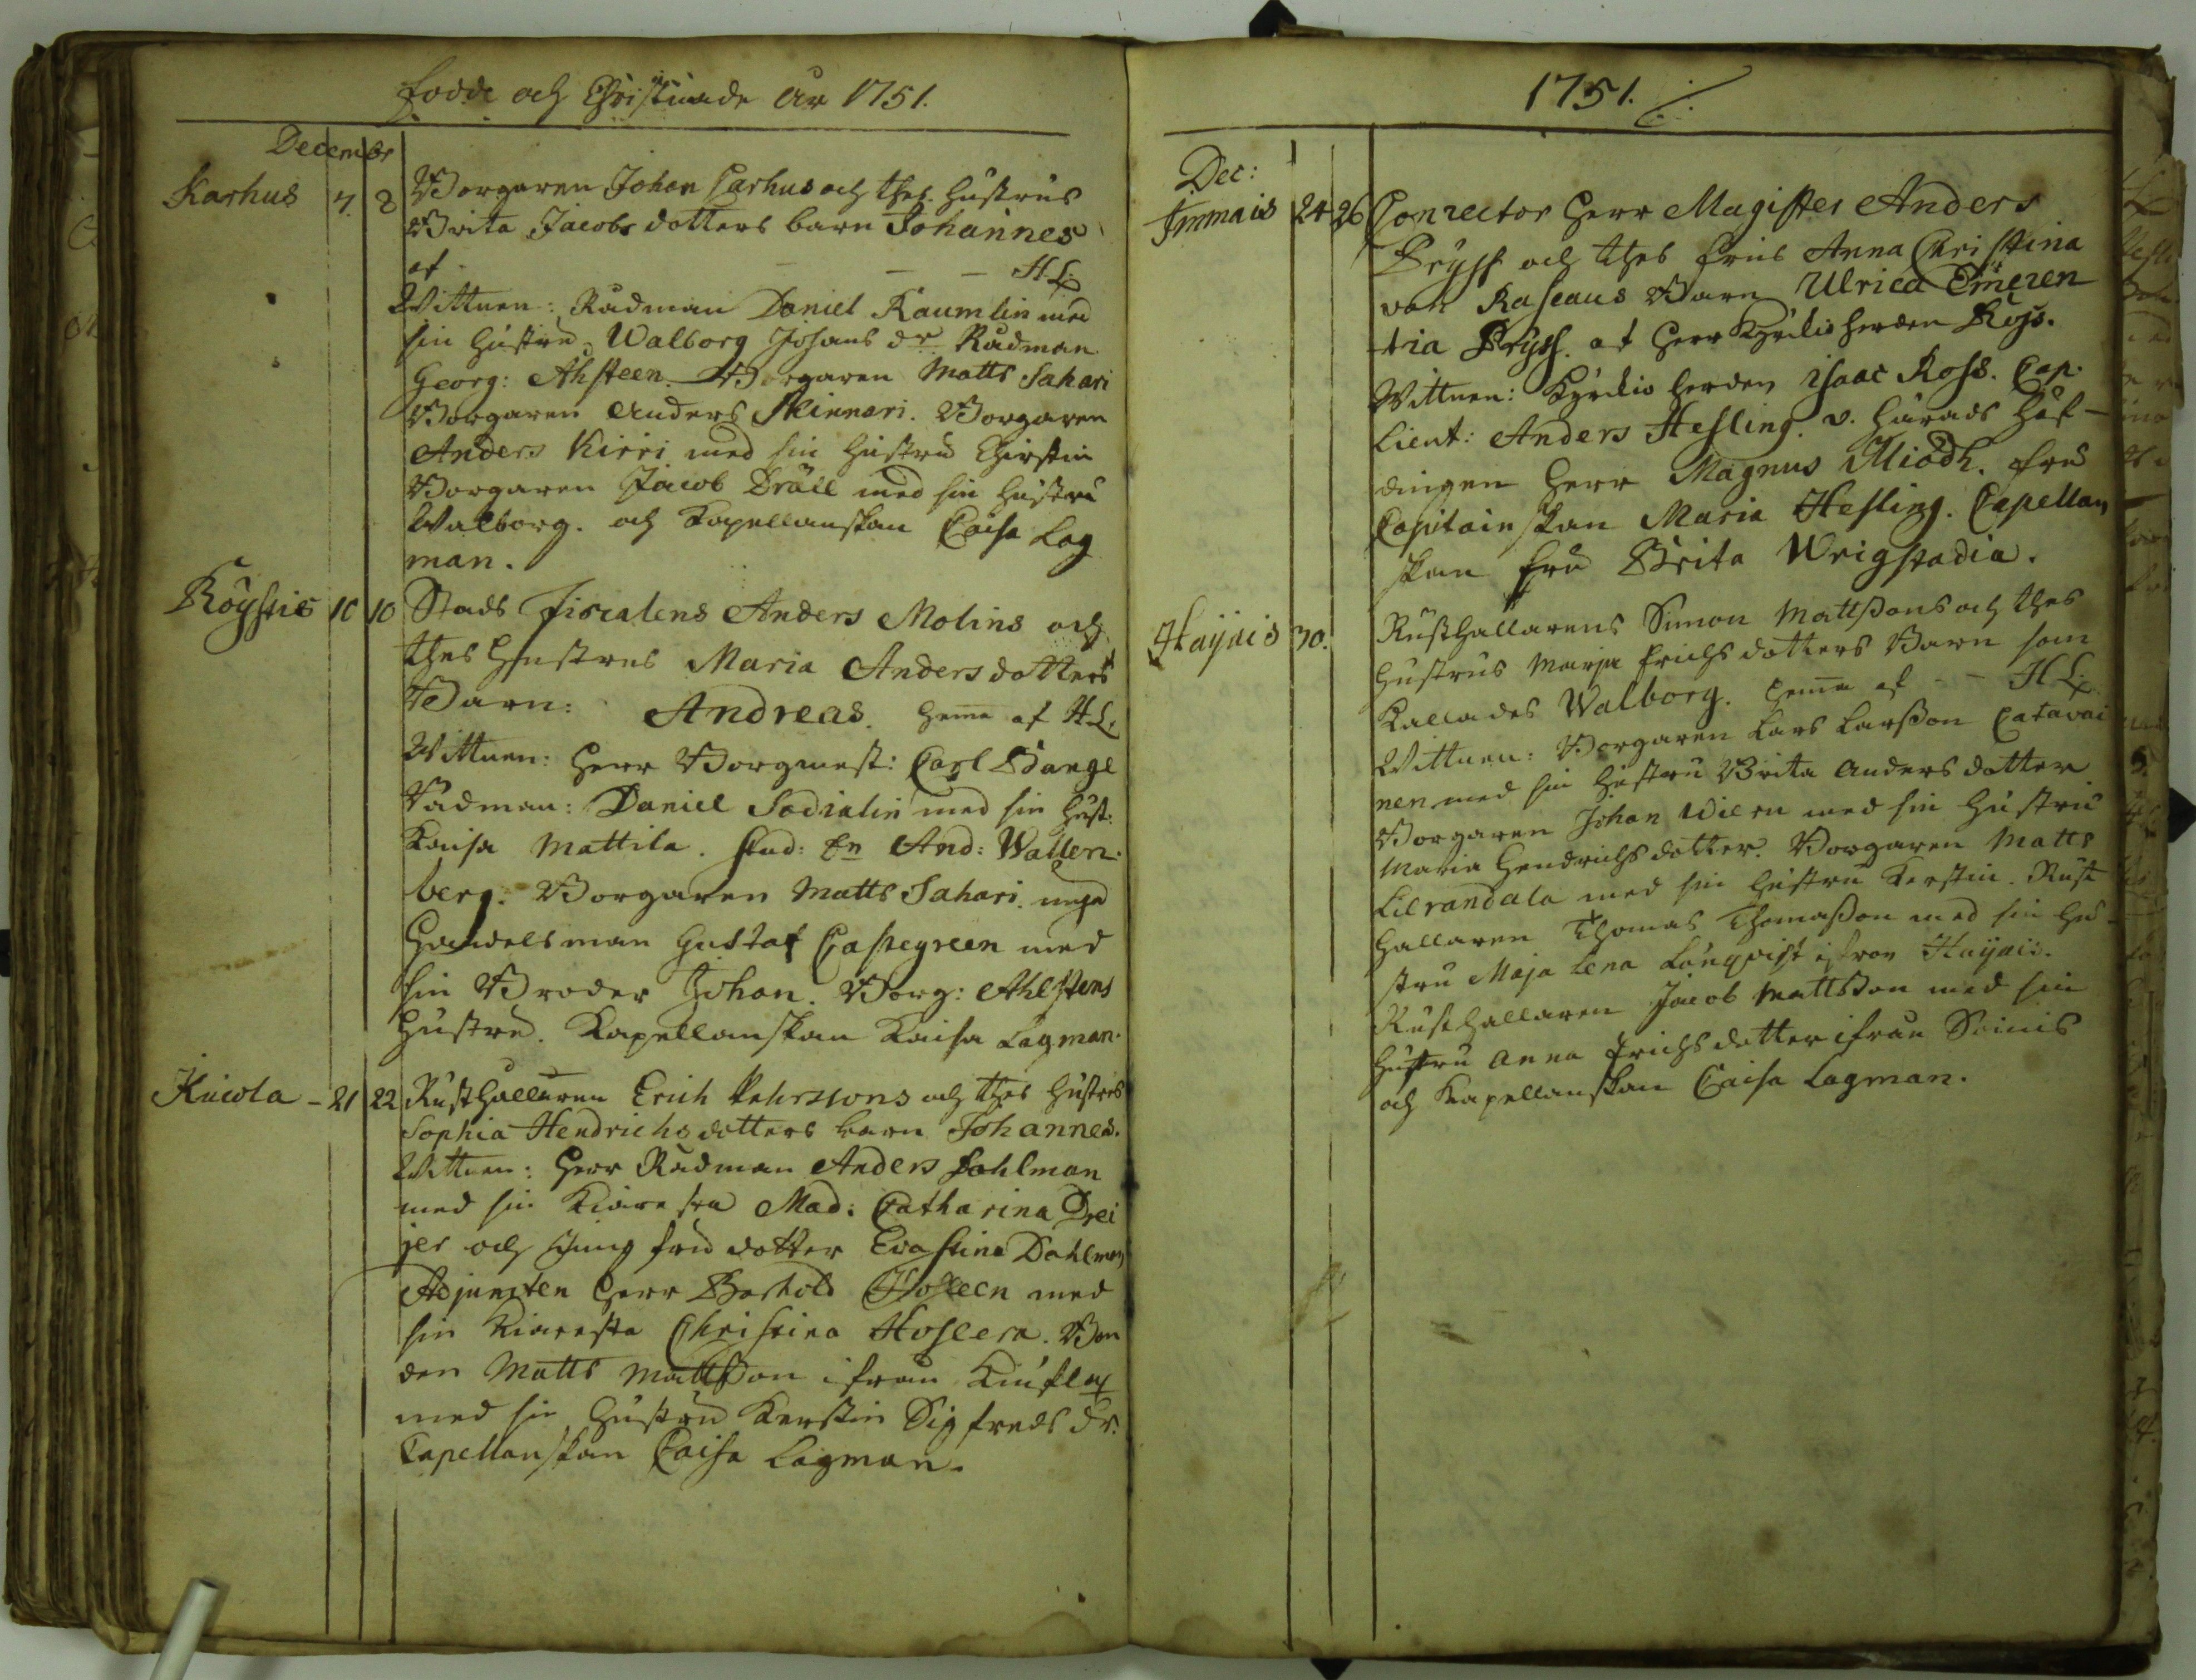 Födde och Christnade År 1751.
December
Karhus 7. 8 Borgaren Johan Carhus och thes hustrus
Brita Jacobs dotters barn Johannes
af - - - H.L.
Wittnen: Rådman Daniel Raumlin med
sin hustru, Walborg Johans dr Rådman
Georg: Ahsteen. Borgaren Matts Sahari
Borgaren Anders Skinnari. Borgaren
Anders Kirri med sin hustru Chirstin
Borgaren Jacob Dräll med sin hustru
Walborg. och Kapellanskan Caisa Lag
man.
Röyhiö 10 10 Stads Fiscalens Anders Molins och
thes hustrus Maria Andersdotters
Barn: Andreas. hema af H.L.
Wittnen: Herr Borgmest: Carl Bange
Rådman: Daniel Sodialin med sin hust:
Kaisa Mattila. Stud: And: Wallen
berg. Borgaren Matts Sahari.
Handelsman Gustaf Castegreen med
sin Broder Johan. Borg: Ahlstens
hustru. Kapellanskan Kaisa Lagman.
Kuiola - 21 22 Rusthållaren Erich Pehrssons och thes hustrus
Sophia Hendrichsdotters barn Johannes.
Wittnen: Herr Rådman Anders Dahlman
med sin Kiäresta Mad: Catharina Drei
jer och Jungfru dotter Eva Stina Dahlman
Adjuncten Herr Barthold Hoseen med
sin Kiäresta Christina Hoseera. Bon
den Matts Mattsson ifrån
med sin hustru Kerstin Sigfreds dr.
Capellanskan Caisa Lagman.
1751.
Dec:
Immais 24 26 Conrector Herr Magister Anders
Pryss och thes frus Anna Christina
von Raseaus Barn Ulrica Emeren
tia Pryss. af Herr Kyrckioherden Ross.
Wittnen: Kyrckioherden Isaac Ross. Cap.
Lieut: Anders Hesling. v. härads höf-
dingen Herr Magnus Miödh. fru
Capitainskan Maria Hesling. Capellan
skan fru Brita Wrigstadia.
Haijais 30. Rusthållarens Simon Mattssons och thes
hustrus Marja Erichsdotters Barn som
kallades Walborg. hema af - - H.L.
Wittnen: Borgaren Lars Larsson Catavai
nen med sin hustru Brita Andersdotter
Borgaren Johan Wilen med sin hustru
Maria Hendrichsdotter. Borgaren Matts
Lilrandala med sin hustru Kerstin. Rust
hållaren Thomas Thomasson med sin hu-
stru Maja Lena Lönqvist ifrån Haijais.
Rusthållaren Jacob Mattsson med sin
hustru Anna Erichsdotter ifrån Soinis
och Kapellanskan Caisa Lagman.